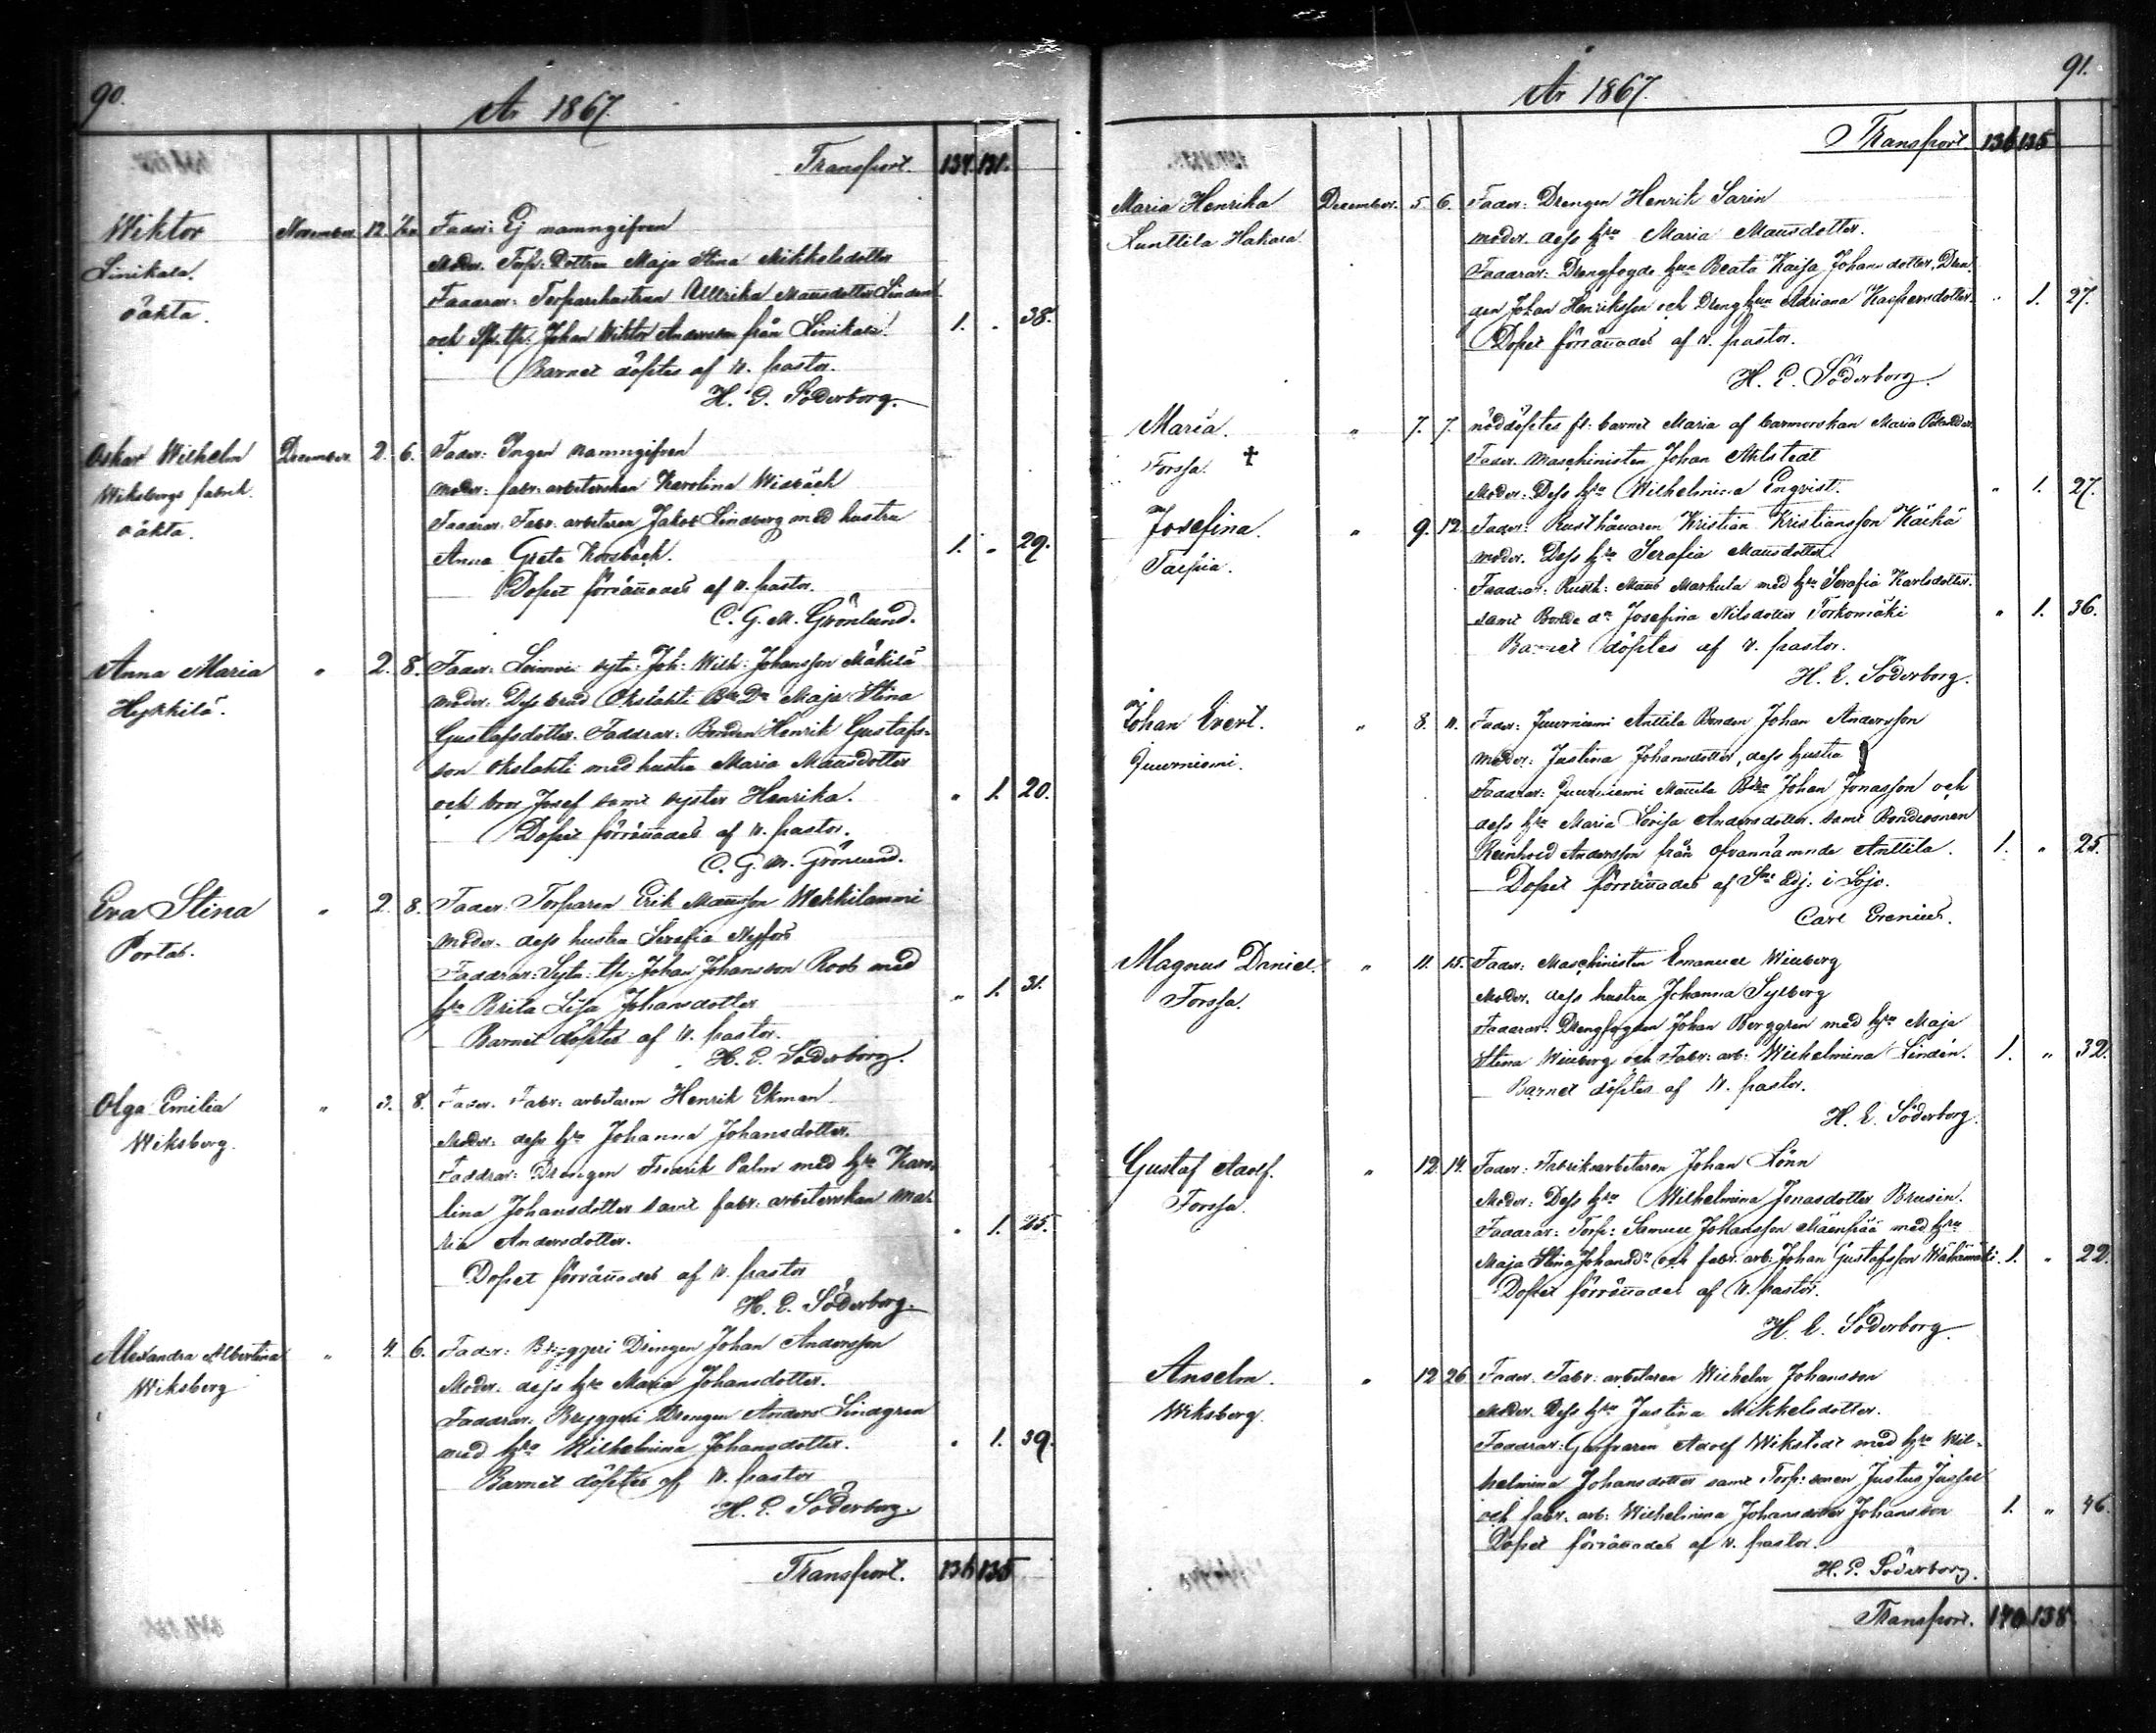 90.
År 1867.
Transport. 134. 131.
Wiktor November 12. Fader: Ej namngifven
Linikala. Moder. Torp: Dottren Maja Stina Mikkelsdotter
oäkta. Faddrar: Torparehustrun Ulrika Mansdotter Lindén
och Johan Wiktor Andersson från Linikala. 1. „ 38.
Barnet döptes af v. pastor.
H. E. Söderborg.
Oskar Wilhelm December 2. 6. Fader: Ingen namngifven
Wiksbergs fabrik. Moder: fabr: arbeterskan Karolina Widbäck
oäkta. Faddrar: Fabr. arbetaren Jakob Lindberg med hustru
Anna Greta Korsbäck. 1. „ 29.
Dopet förrättades af v. pastor.
C. G. M. Grönlund.
Anna Maria „ 2. 8. Fader: Joh: Wilh: Johansson Mäkilä
Hykkilä. Moder: Dess brud Okslahti Maja Stina
Gustafsdotter. Faddrar: Bonden Henrik Gustafs-
son Okslahti med hustru Maria Mansdotter
och bror Josef samt syster Henrika. „ 1. 20.
Dopet förrättades af v. pastor.
C. G. M. Grönlund.
Eva Stina „ 2. 8. Fader: Torparen Erik Mansson Wehkilammi
Portas. Moder. dess hustru Serafia Nyfors
Faddrar: Johan Johansson Roos med
h:u Brita Lisa Johansdotter „ 1. 31.
Barnet döptes af v. pastor.
H. E. Söderborg.
Olga Emilia „ 3. 8. Fader. Fabr: arbetaren Henrik Ekman
Wiksberg. Moder: dess h:u Johanna Johansdotter.
Faddrar: Drengen Fredrik Palm med h:u Karo-
lina Johansdotter samt fabr: arbeterskan Ma-
ria Andersdotter. „ 1. 25.
Dopet förrättades af v. pastor
H. E. Söderborg.
Alexandra Albertina „ 4. 6. Fader: Bryggeri Drengen Johan Andersson
Wiksberg Moder. dess h:u Maria Johansdotter.
Faddrar: Bryggeri Drengen Anders Lindgren
med h:u Wilhelmina Johansdotter. „ 1. 39.
Barnet döptes af v. pastor
H. E. Söderborg.
Transport. 136 135
91.
År 1867.
Transport 136 135
Maria Henrika December. 5. 6. Fader: Drengen Henrik Sarin
Kunttila Hakara Moder. dess h:u Maria Mansdotter.
Faddrar: Drengfogde h:un Beata Kaisa Johansdotter, Dren-
gen Johan Henriksson och Dreng h:un Adriana Kaspersdotter. „ 1. 27.
Dopet förrättades af v. pastor.
H. E. Söderborg.
Maria. „ 7. 7. nöddöptes fl: barnet Maria af barnmorskan Maria
Forssa. † Fader. Maschinisten Johan Ahlstedt
Moder: Dess h:u Wilhelmina Enqvist. „ 1. 27.
Josefina. „ 9. 12. Fader: Rusthållaren Kristian Kristiansson Käikä
Talpia. Moder. Dess h:u Serafia Mansdotter.
Faddrar: Rusth: Måns Markula med h:u Serafia Karlsdotter.
samt Bonde d:r Josefina Nilsdotter Torkomäki „ 1. 36.
Barnet döptes af v. pastor.
H. E. Söderborg.
Johan Evert. „ 8. 11. Fader: Juurniemi Anttila Bonden Johan Andersson
Juurniemi. Moder: Justina Johansdotter, dess hustru
Faddrar: Juurniemi Mattila Johan Jonasson och
dess h:u Maria Lovisa Andersdotter. samt Bondesonen
Reinhold Andersson från ofvannämnde Anttila. 1. „ 25.
Dopet förrättades af adj: i Lojo.
Carl Erenius.
Magnus Daniel. „ 11. 15. Fader: Maschinisten Emanuel Winberg
Forssa. Moder. dess hustru Johanna Sylberg
Faddrar: Drengfogden Johan Berggren med h:u Maja
Stina Winberg och Fabr: arb: Wilhelmina Lindén. 1. „ 32.
Barnet döptes af v. pastor.
H. E. Söderborg.
Gustaf Adolf. „ 12. 14. Fader: Fabriksarbetaren Johan Lönn
Forssa. Moder: Dess h:u Wilhelmina Jonasdotter Brusin.
Faddrar: Torp: Samuel Johansson Mäenpää med h:u
Maja Stina Johansd:r och fabr: arb: Johan Gustafsson Wähämäki. 1. „ 22.
Dopet förrättades af v. pastor.
H. E. Söderborg.
Anselm. „ 12 26 Fader. Fabr: arbetaren Wilhelm Johansson
Wiksberg. Moder. Dess h:u Justina Mikkelsdotter.
Faddrar: Garfvaren Adolf Wikstedt med h:u Wil-
helmina Johansdotter samt Torp: sonen Justus
och fabr: arb: Wilhelmina Johansdotter Johansson 1. „ 46.
Dopet förrättades af v. pastor.
H. E. Söderborg.
Transport. 140 138.